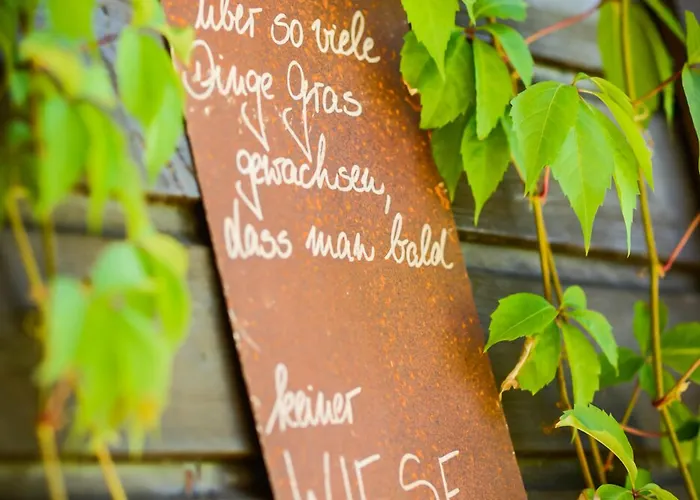 über so viele
Dinge Gras
gewachsen,
dass man bald
keiner
WIESE